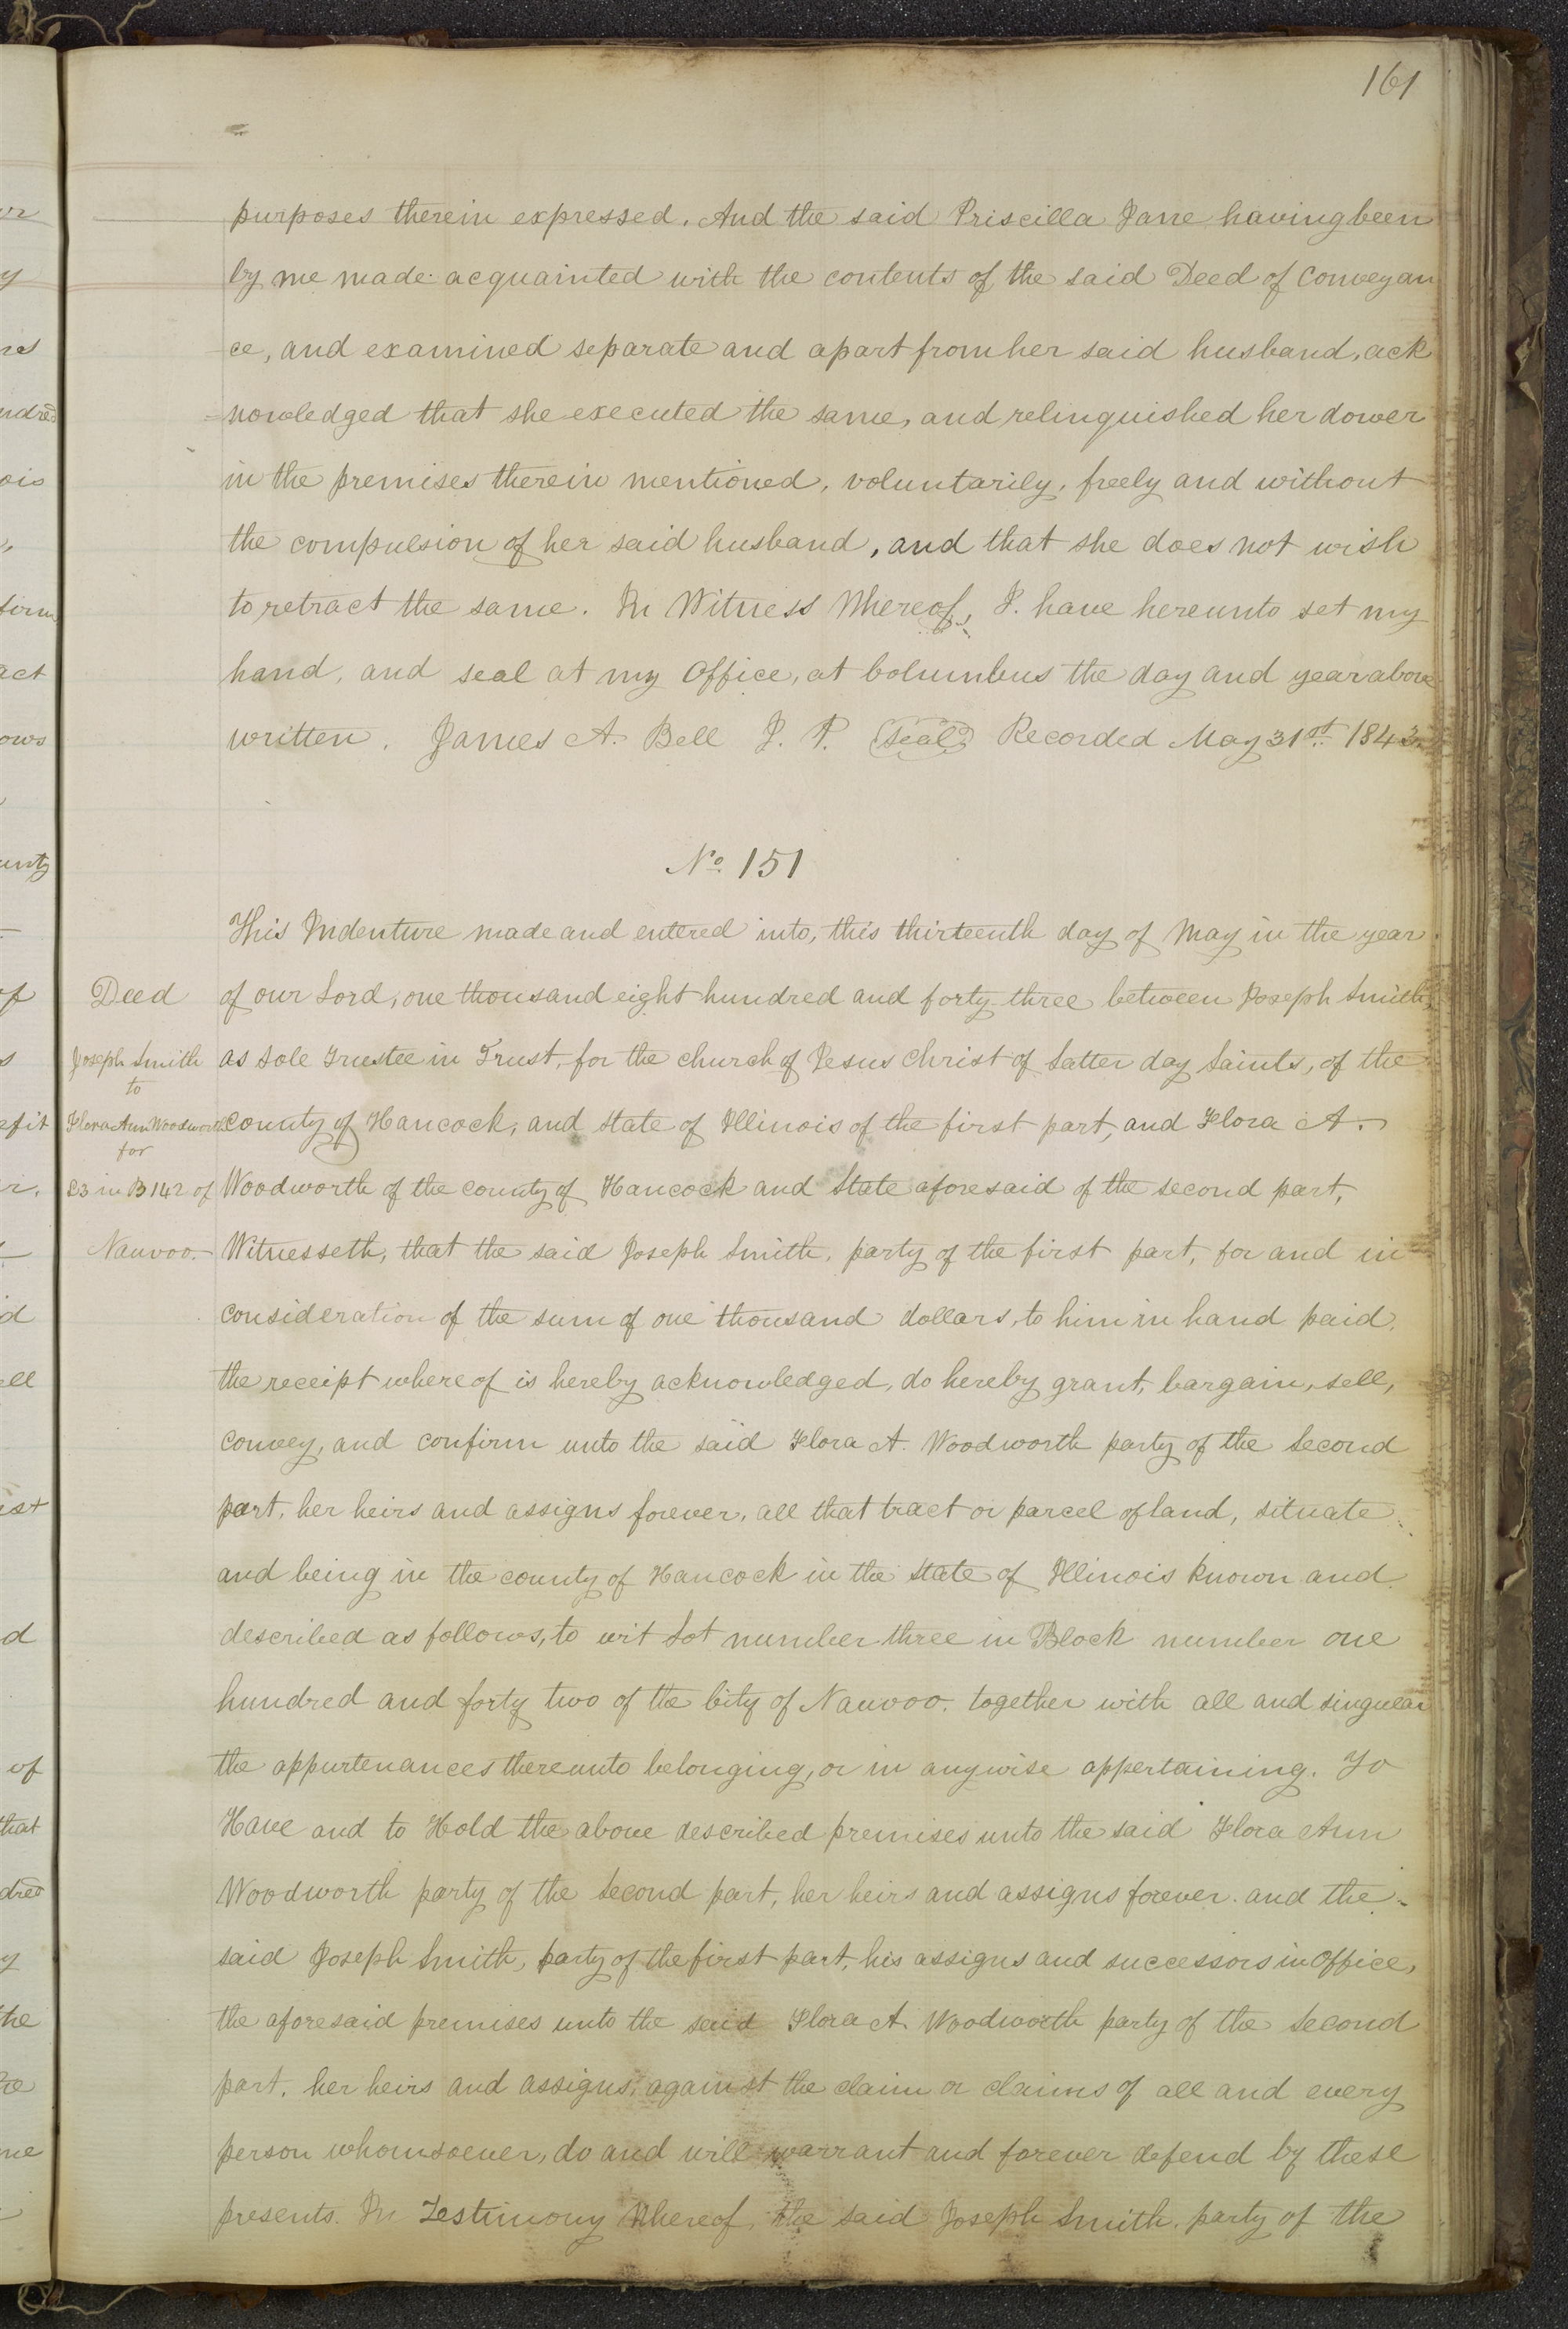 161
purposes therein expressed. And the said Priscilla Jane having been
by me made acquainted with the contents of the said Deed of Conveyan
ce, and examined separate and apart from her said husband, ack
nowledged that she executed the same, and relinquished her dower
in the premises therein mentioned, voluntarily, freely and without
the compulsion of her said husband, and that she does not wish
to retract the same. In Witness Whereof, I. have hereunto set my
hand, and seal at my Office, at Columbus the day and year above
written. James A. Bell J. P. (Seal) Recorded May 31st. 1843.
No. 151
This Indenture made and entered into, this thirteenth day of May in the year
Deed
of our Lord, one thousand eight hundred and forty three between Joseph Smith,
Joseph Smith
to
as Sole Trustee in Trust, for the church of Jesus Christ of Latter day Saints, of the
Flora Ann Woodworth
for
County of Hancock, and State of Illinois of the first part, and Flora A.
L3 in B 142 of
Woodworth of the county of Hancock and State aforesaid of the second part,
Nauvoo.
Witnesseth, that the said Joseph Smith, party of the first part, for and in
consideration of the sum of one thousand dollars, to him in hand paid,
the receipt whereof is hereby acknowledged, do hereby grant, bargain, sell,
convey, and confirm unto the said Flora A. Woodworth party of the Second
part, her heirs and assigns forever, all that tract or parcel of land, situate
and being in the county of Hancock in the State of Illinois known and
described as follows, to wit Lot number three in Block number one
hundred and forty two of the City of Nauvoo. together with all and singular
the appurtenances thereunto belonging, or in anywise appertaining. To
Have and to Hold the above described premises unto the said Flora Ann
Woodworth party of the Second part, her heirs and assigns forever. and the
said Joseph Smith, party of the first part, his assigns and successors in Office,
the aforesaid premises unto the said Flora A. Woodworth party of the Second
part, her heirs and assigns, against the claim or claims of all and every
person whomsoever, do and will warrant and forever defend by these
presents. In Testimony Whereof, the said Joseph Smith, party of the